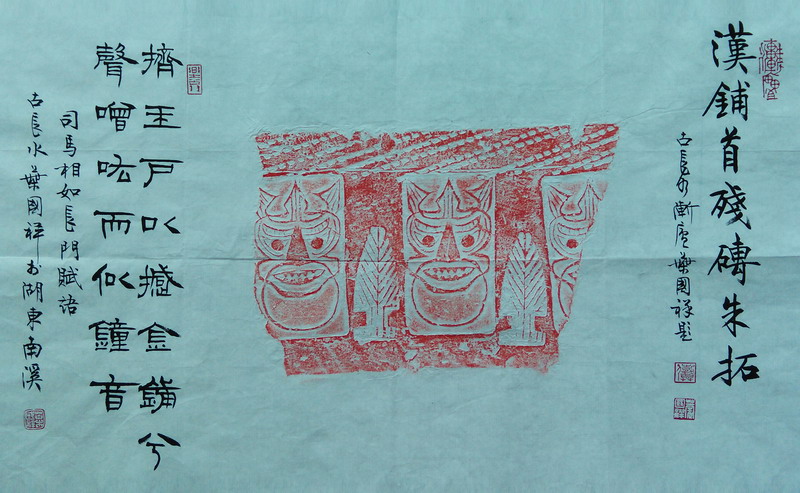 漢鋪首殘磚朱拓
古長水漸廬葉國祥題
擠玉戶以撼金鋪兮
聲噌吰而似鐘音
司馬相如長門賦語
古長水葉國祥於湖東南溪